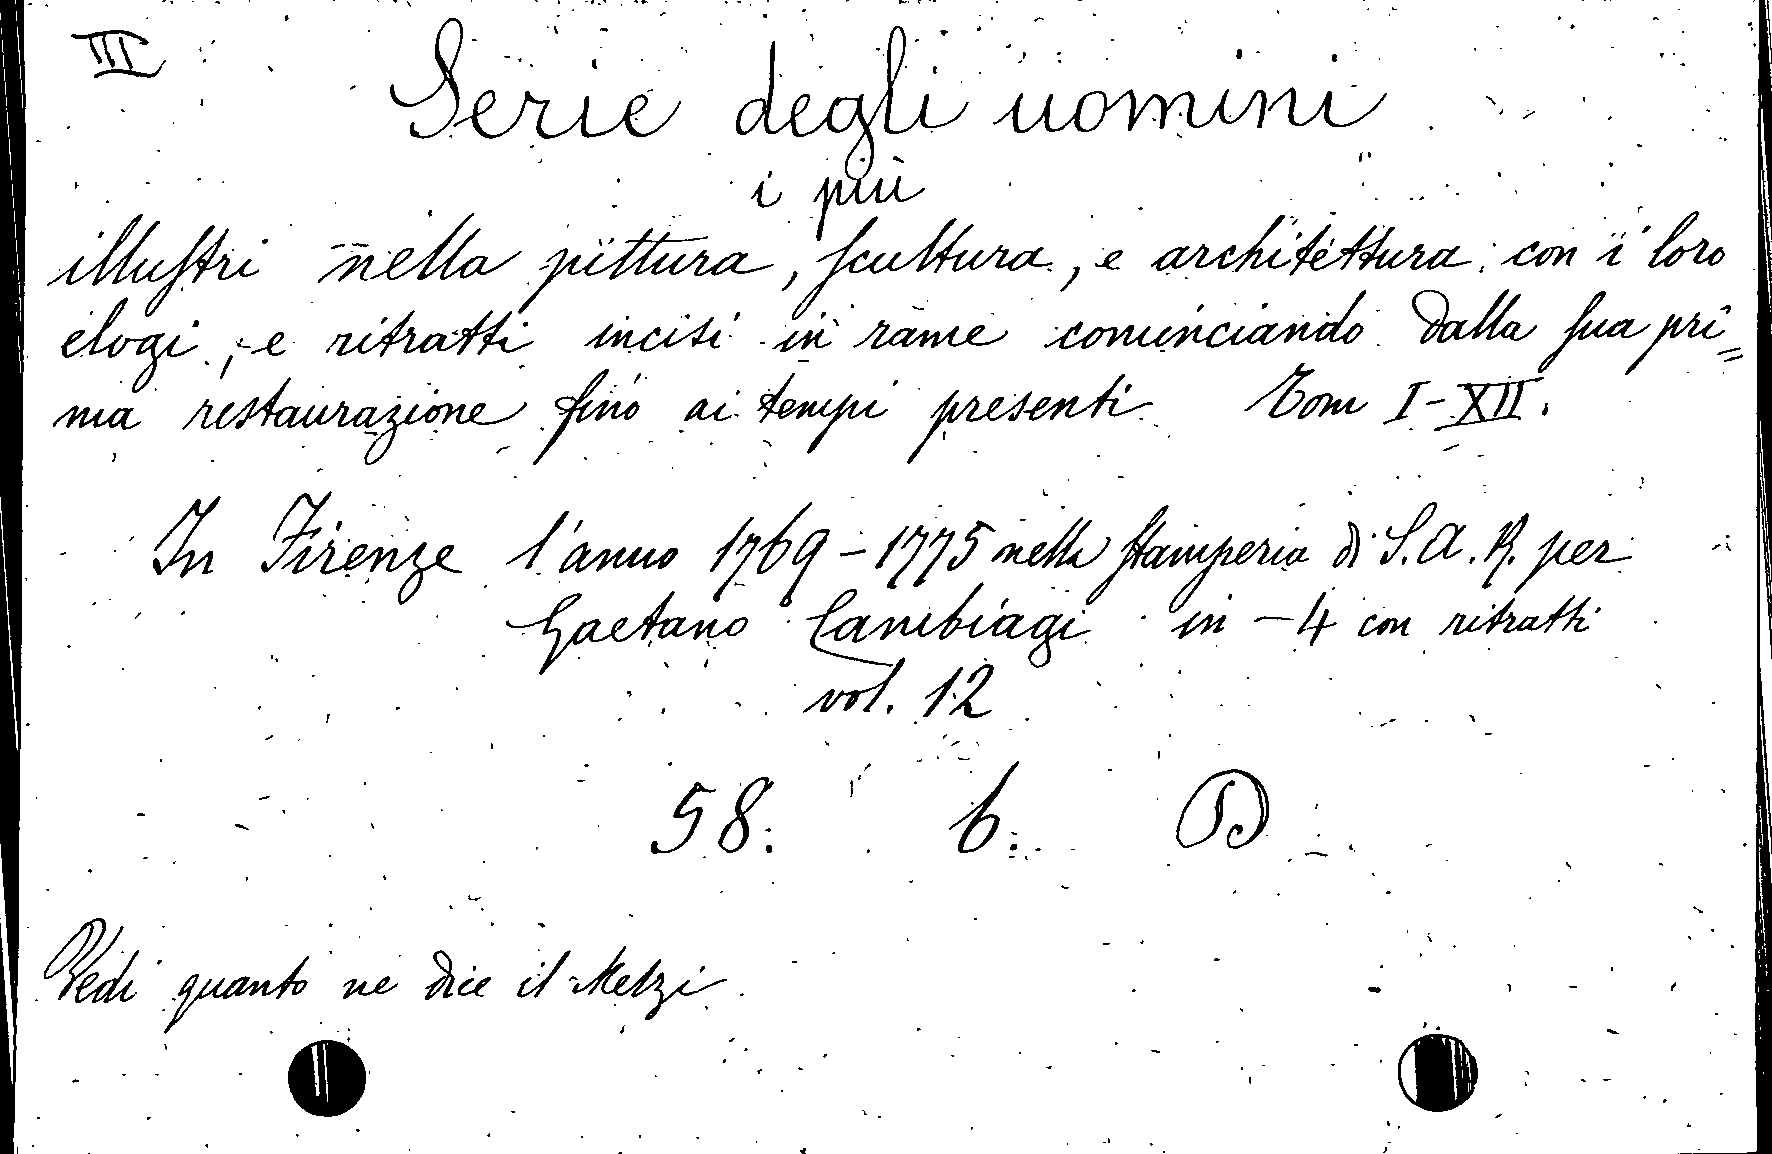 III
Serie degli uomini
i più
illustri nella pittura, scultura, e architettura: con i loro
elogi, e ritratti incisi in rame cominciando dalla sua pri=
ma restaurazione fino ai tempi presenti. Tom I-XII.
In Firenze l'anno 1769-1775 nella Stamperia di S. A. R. per
Gaetano Cambiagi in-4 con ritratti
vol. 12
58. 6. D
Vedi quanto ne dice il Melzi.